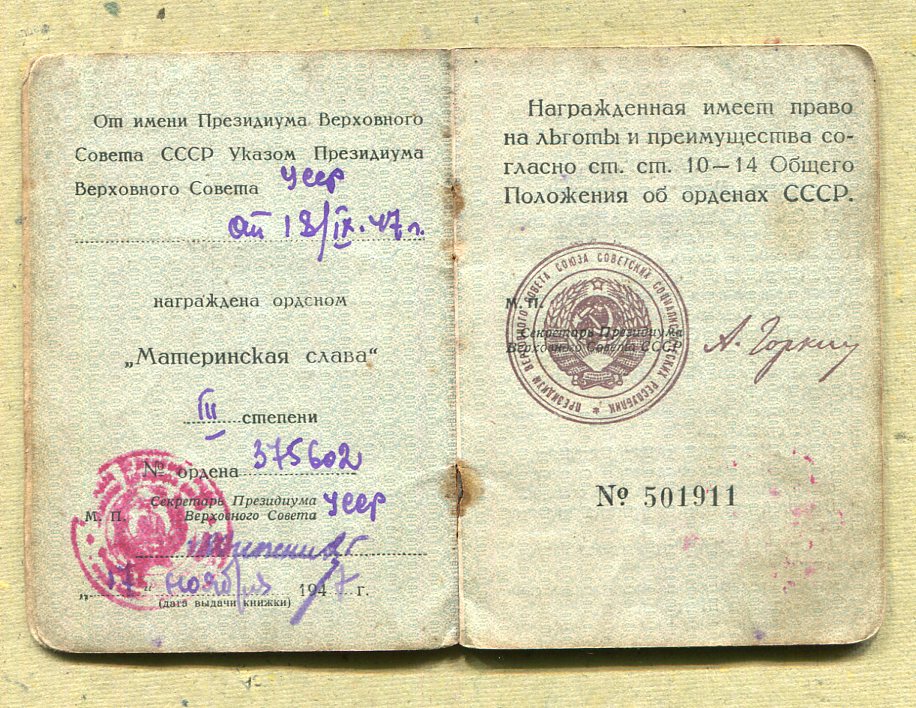 От имени Президиума Верховного
Совета СССР Указом Президиума
Верховного Совета УССР
от 18/IX-47 г.
награждена орденом
„Материнская слава“
III степени
№ ордена 375602
Секретарь Президиума
Верховного Совета УССР
М. П.
„17“ ноября 1947 г.
(дата выдачи книжки)
Награжденная имеет право
на льготы и преимущества со-
гласно ст. ст. 10—14 Общего
Положения об орденах СССР.
ПРЕЗИДИУМ ВЕРХОВНОГО СОВЕТА СОЮЗА СОВЕТСКИХ СОЦИАЛИСТИЧЕСКИХ РЕСПУБЛИК
М. П.
Секретарь Президиума
Верховного Совета СССР
А. Горкин
№ 501911